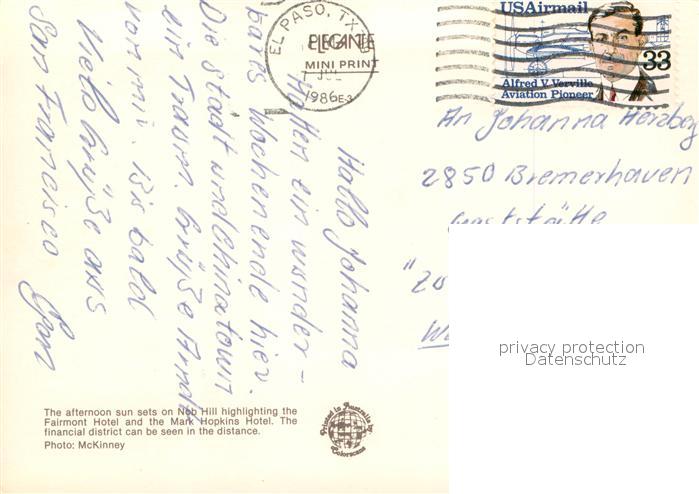 EL PASO, TX
ELEGANTE
MINI PRINT
1986
USAirmail
33
Alfred V. Verville
Aviation Pioneer
Hallo Johanna
Hatten ein wunder-
bares Wochenende hier.
Die Stadt und Chinatown
ein Traum. Grüße Arndt
von mir. Bis bald
Viele Grüße aus
San Francisco
An Johanna Herzberg
2850 Bremerhaven
Gaststätte
privacy protection
Datenschutz
The afternoon sun sets on Nob Hill highlighting the
Fairmont Hotel and the Mark Hopkins Hotel. The
financial district can be seen in the distance.
Photo: McKinney
Printed in Australia by
Colorscans